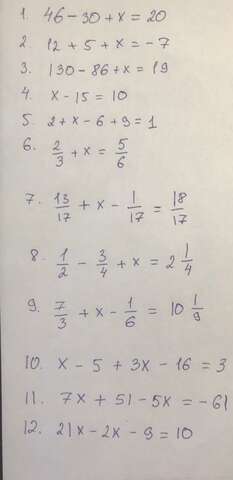 1. 46 - 30 + x = 20
2. 12 + 5 + x = -7
3. 130 - 86 + x = 19
4. x - 15 = 10
5. 2 + x - 6 + 9 = 1
6. 2/3 + x = 5/6
7. 13/17 + x - 1/17 = 18/17
8. 1/2 - 3/4 + x = 2 1/4
9. 7/3 + x - 1/6 = 10 1/9
10. x - 5 + 3x - 16 = 3
11. 7x + 51 - 5x = -61
12. 21x - 2x - 9 = 10